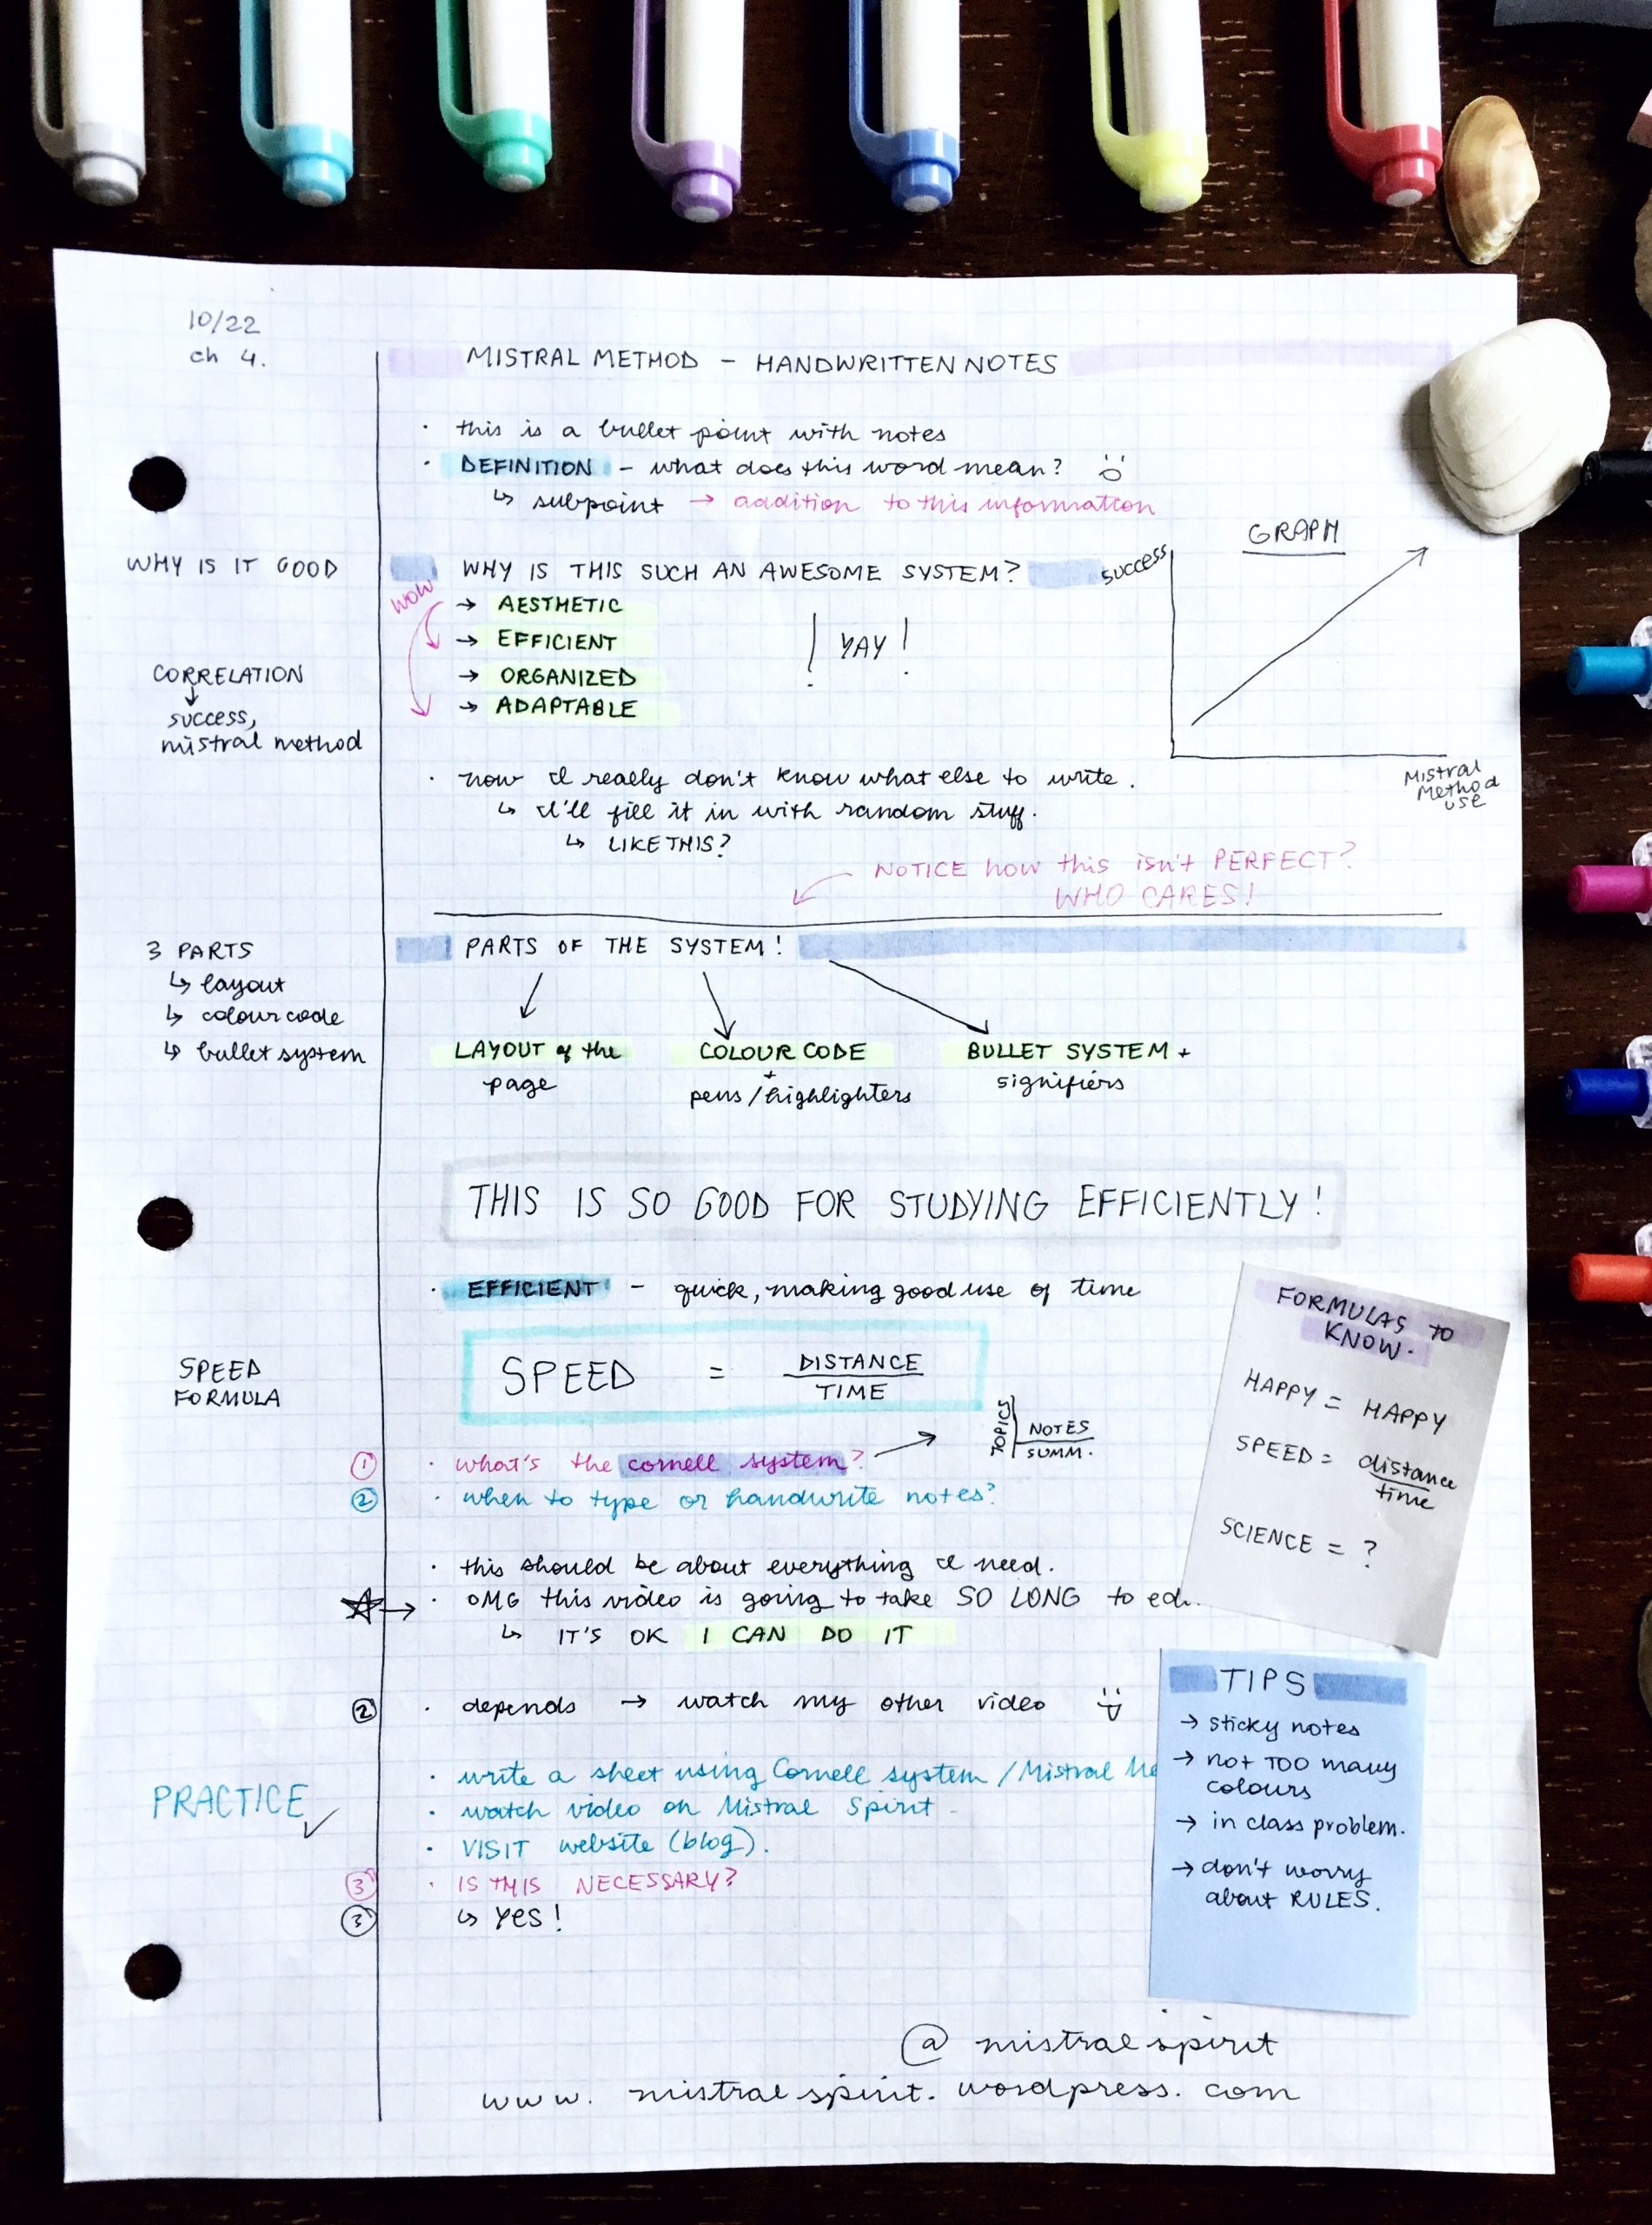 10/22
ch 4.
MISTRAL METHOD – HANDWRITTEN NOTES
· this is a bullet point with notes
· DEFINITION – what does this word mean?
↳ subpoint → addition to this information
WHY IS IT GOOD
WHY IS THIS SUCH AN AWESOME SYSTEM?
WOW
→ AESTHETIC
→ EFFICIENT
→ ORGANIZED
→ ADAPTABLE
! YAY !
GRAPH
success
Mistral
Method
use
CORRELATION
↓
success,
mistral method
· now I really don't know what else to write.
↳ I'll fill it in with random stuff.
↳ LIKE THIS?
NOTICE how this isn't PERFECT?
WHO CARES!
3 PARTS
↳ layout
↳ colour code
↳ bullet system
PARTS OF THE SYSTEM!
LAYOUT of the
page
COLOUR CODE
+
pens/highlighters
BULLET SYSTEM +
signifiers
THIS IS SO GOOD FOR STUDYING EFFICIENTLY!
· EFFICIENT – quick, making good use of time
SPEED
FORMULA
SPEED = DISTANCE
TIME
① · what's the cornell system? →
TOPICS
NOTES
SUMM.
② · when to type or handwrite notes?
· this should be about everything I need.
☆→ · OMG this video is going to take SO LONG to
↳ IT'S OK I CAN DO IT
② · depends → watch my other video
PRACTICE ✓
· write a sheet using Cornell system / Mistral
· watch video on Mistral Spirit
· VISIT website (blog).
③ · IS THIS NECESSARY?
③ ↳ YES!
FORMULAS TO
KNOW.
HAPPY = HAPPY
SPEED = distance
time
SCIENCE = ?
TIPS
→ sticky notes
→ not TOO many
colours
→ in class problem.
→ don't worry
about RULES.
@ mistralspirit
www. mistralspirit. wordpress. com